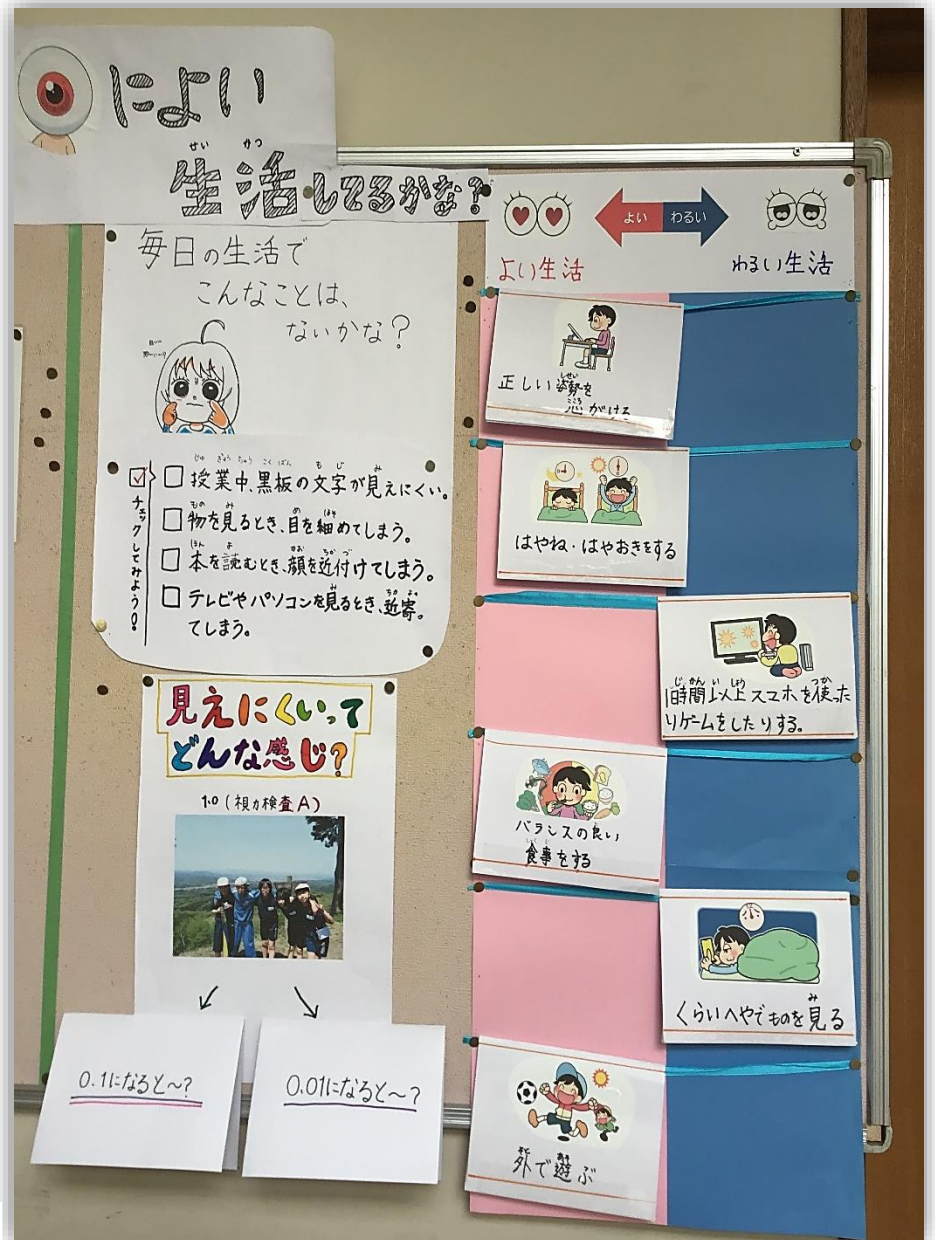 によい
生活してるかな?
毎日の生活で
こんなことは、
ないかな?
チェックしてみよう!
授業中、黒板の文字が見えにくい。
物を見るとき、目を細めてしまう。
本を読むとき、顔を近付けてしまう。
テレビやパソコンを見るとき、近寄っ
てしまう。
見えにくいって
どんな感じ?
1.0(視力検査A)
0.1になると~?
0.01になると~?
よい
わるい
よい生活
わるい生活
正しい姿勢を
心がける
はやね・はやおきをする
1時間以上スマホを使った
りゲームをしたりする。
バランスの良い
食事をする
くらいへやでものを見る
外で遊ぶ